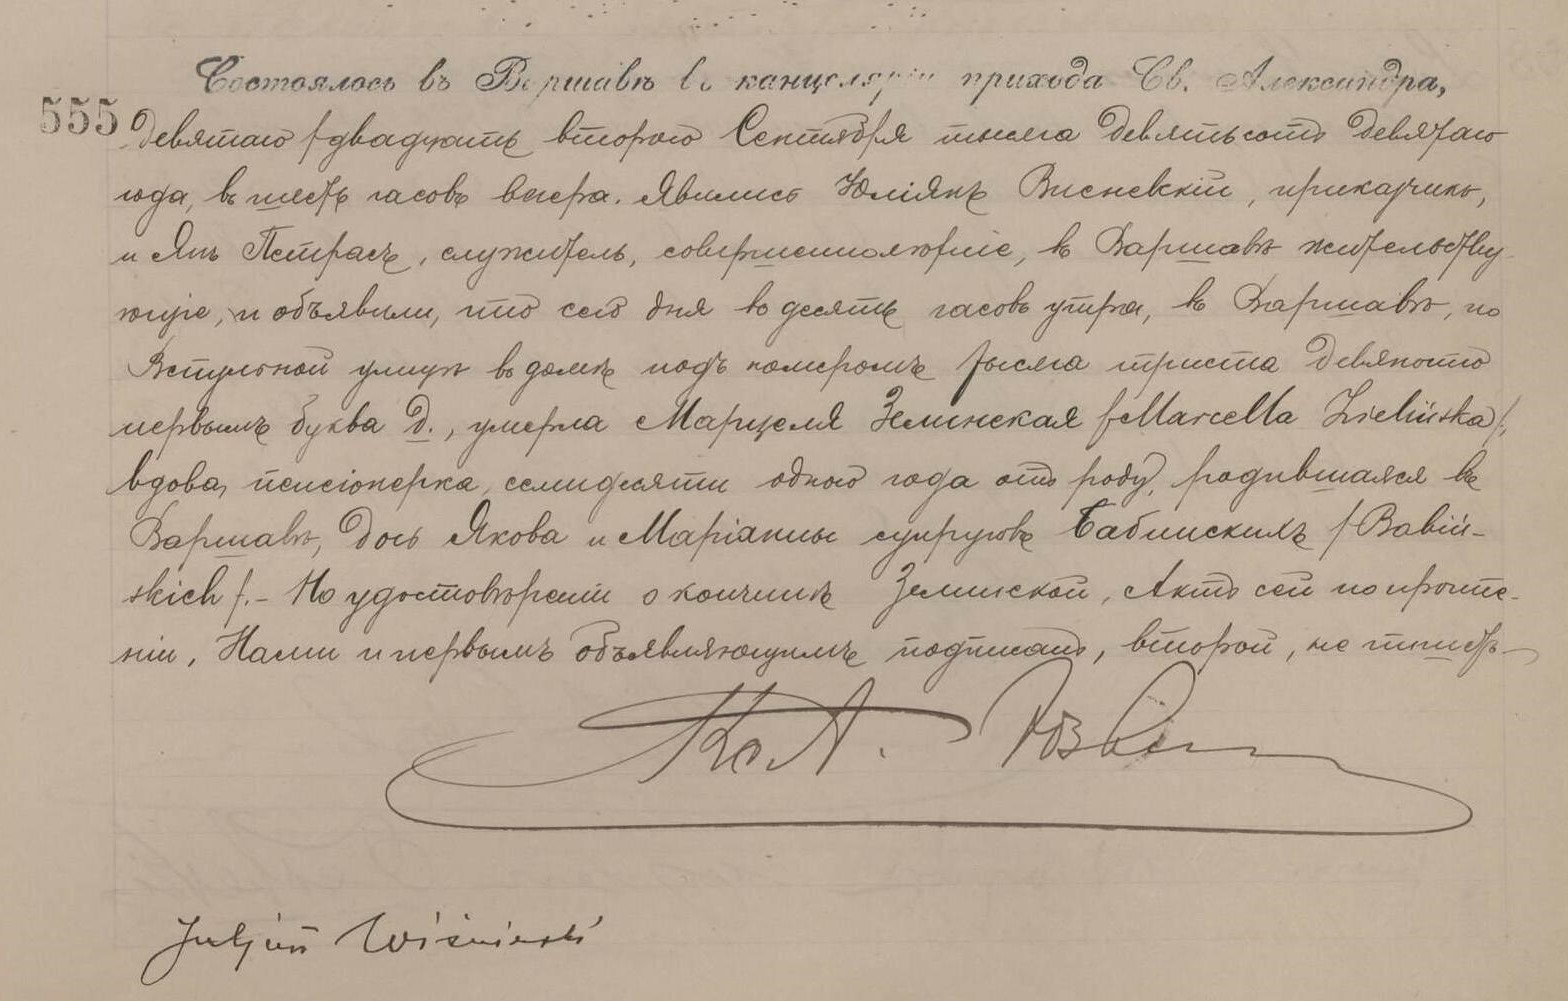 Состоялось въ Варшавѣ въ канцеляріи прихода Св. Александра,
555 Девятаго /двадцать второго Сентября тысяча девятьсотъ девятаго
года, въ шесть часовъ вечера. Явились Юліянъ Висневскій, приказчикъ,
и Янъ Петрасъ, служитель, совершеннолѣтніе, въ Варшавѣ жительству
ющіе, и объявили, что сего дня въ десять часовъ утра, въ Варшавѣ, по
улицѣ въ домѣ подъ номеромъ тысяча триста девяносто
первымъ буква Д., умерла Марцеля Зелинская /Marcella Zielińska/,
вдова, пенсіонерка, семидесяти одного года отъ роду, родившаяся въ
Варшавѣ, дочь Якова и Маріанны супруговъ Бабинскихъ /Babiń-
skich/.- По удостовѣреніи о кончинѣ Зелинской, Актъ сей по прочте-
ніи, Нами и первымъ объявляющимъ подписанъ, второй, не пишетъ.
Juljan Wiśniewski